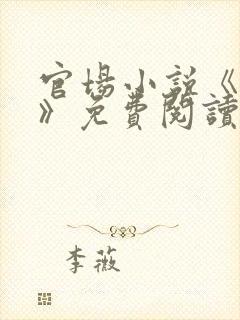 官場小說《
》免費閱讀
李薇